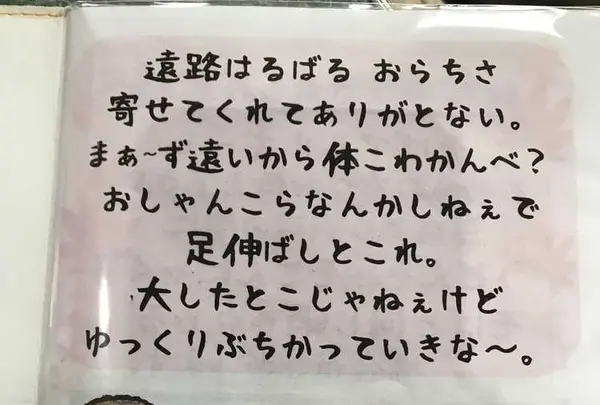 遠路はるばる おらちさ
寄せてくれてありがとない。
まぁ〜ず遠いから体こわかんべ？
おしゃんこらなんかしねぇで
足伸ばしとこれ。
大したとこじゃねぇけど
ゆっくりぶちかっていきな〜。